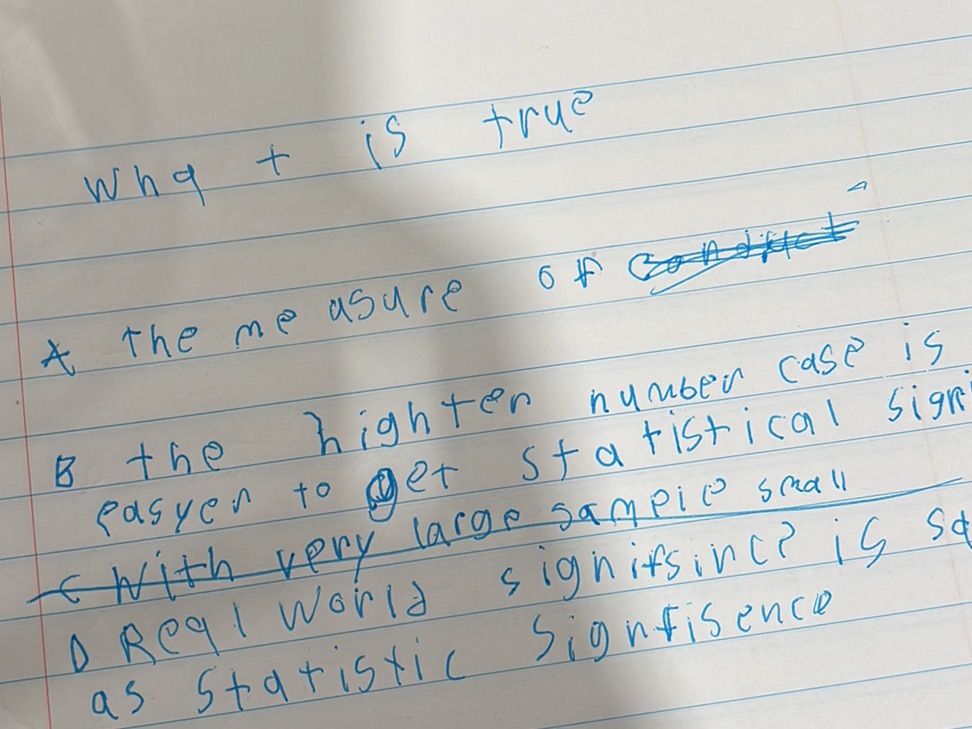 What is true
A the measure of
B the highter number case is
easyer to get statistical signi
C With very large sample small
D Real World signifsince is sa
as Statistic Signfisence